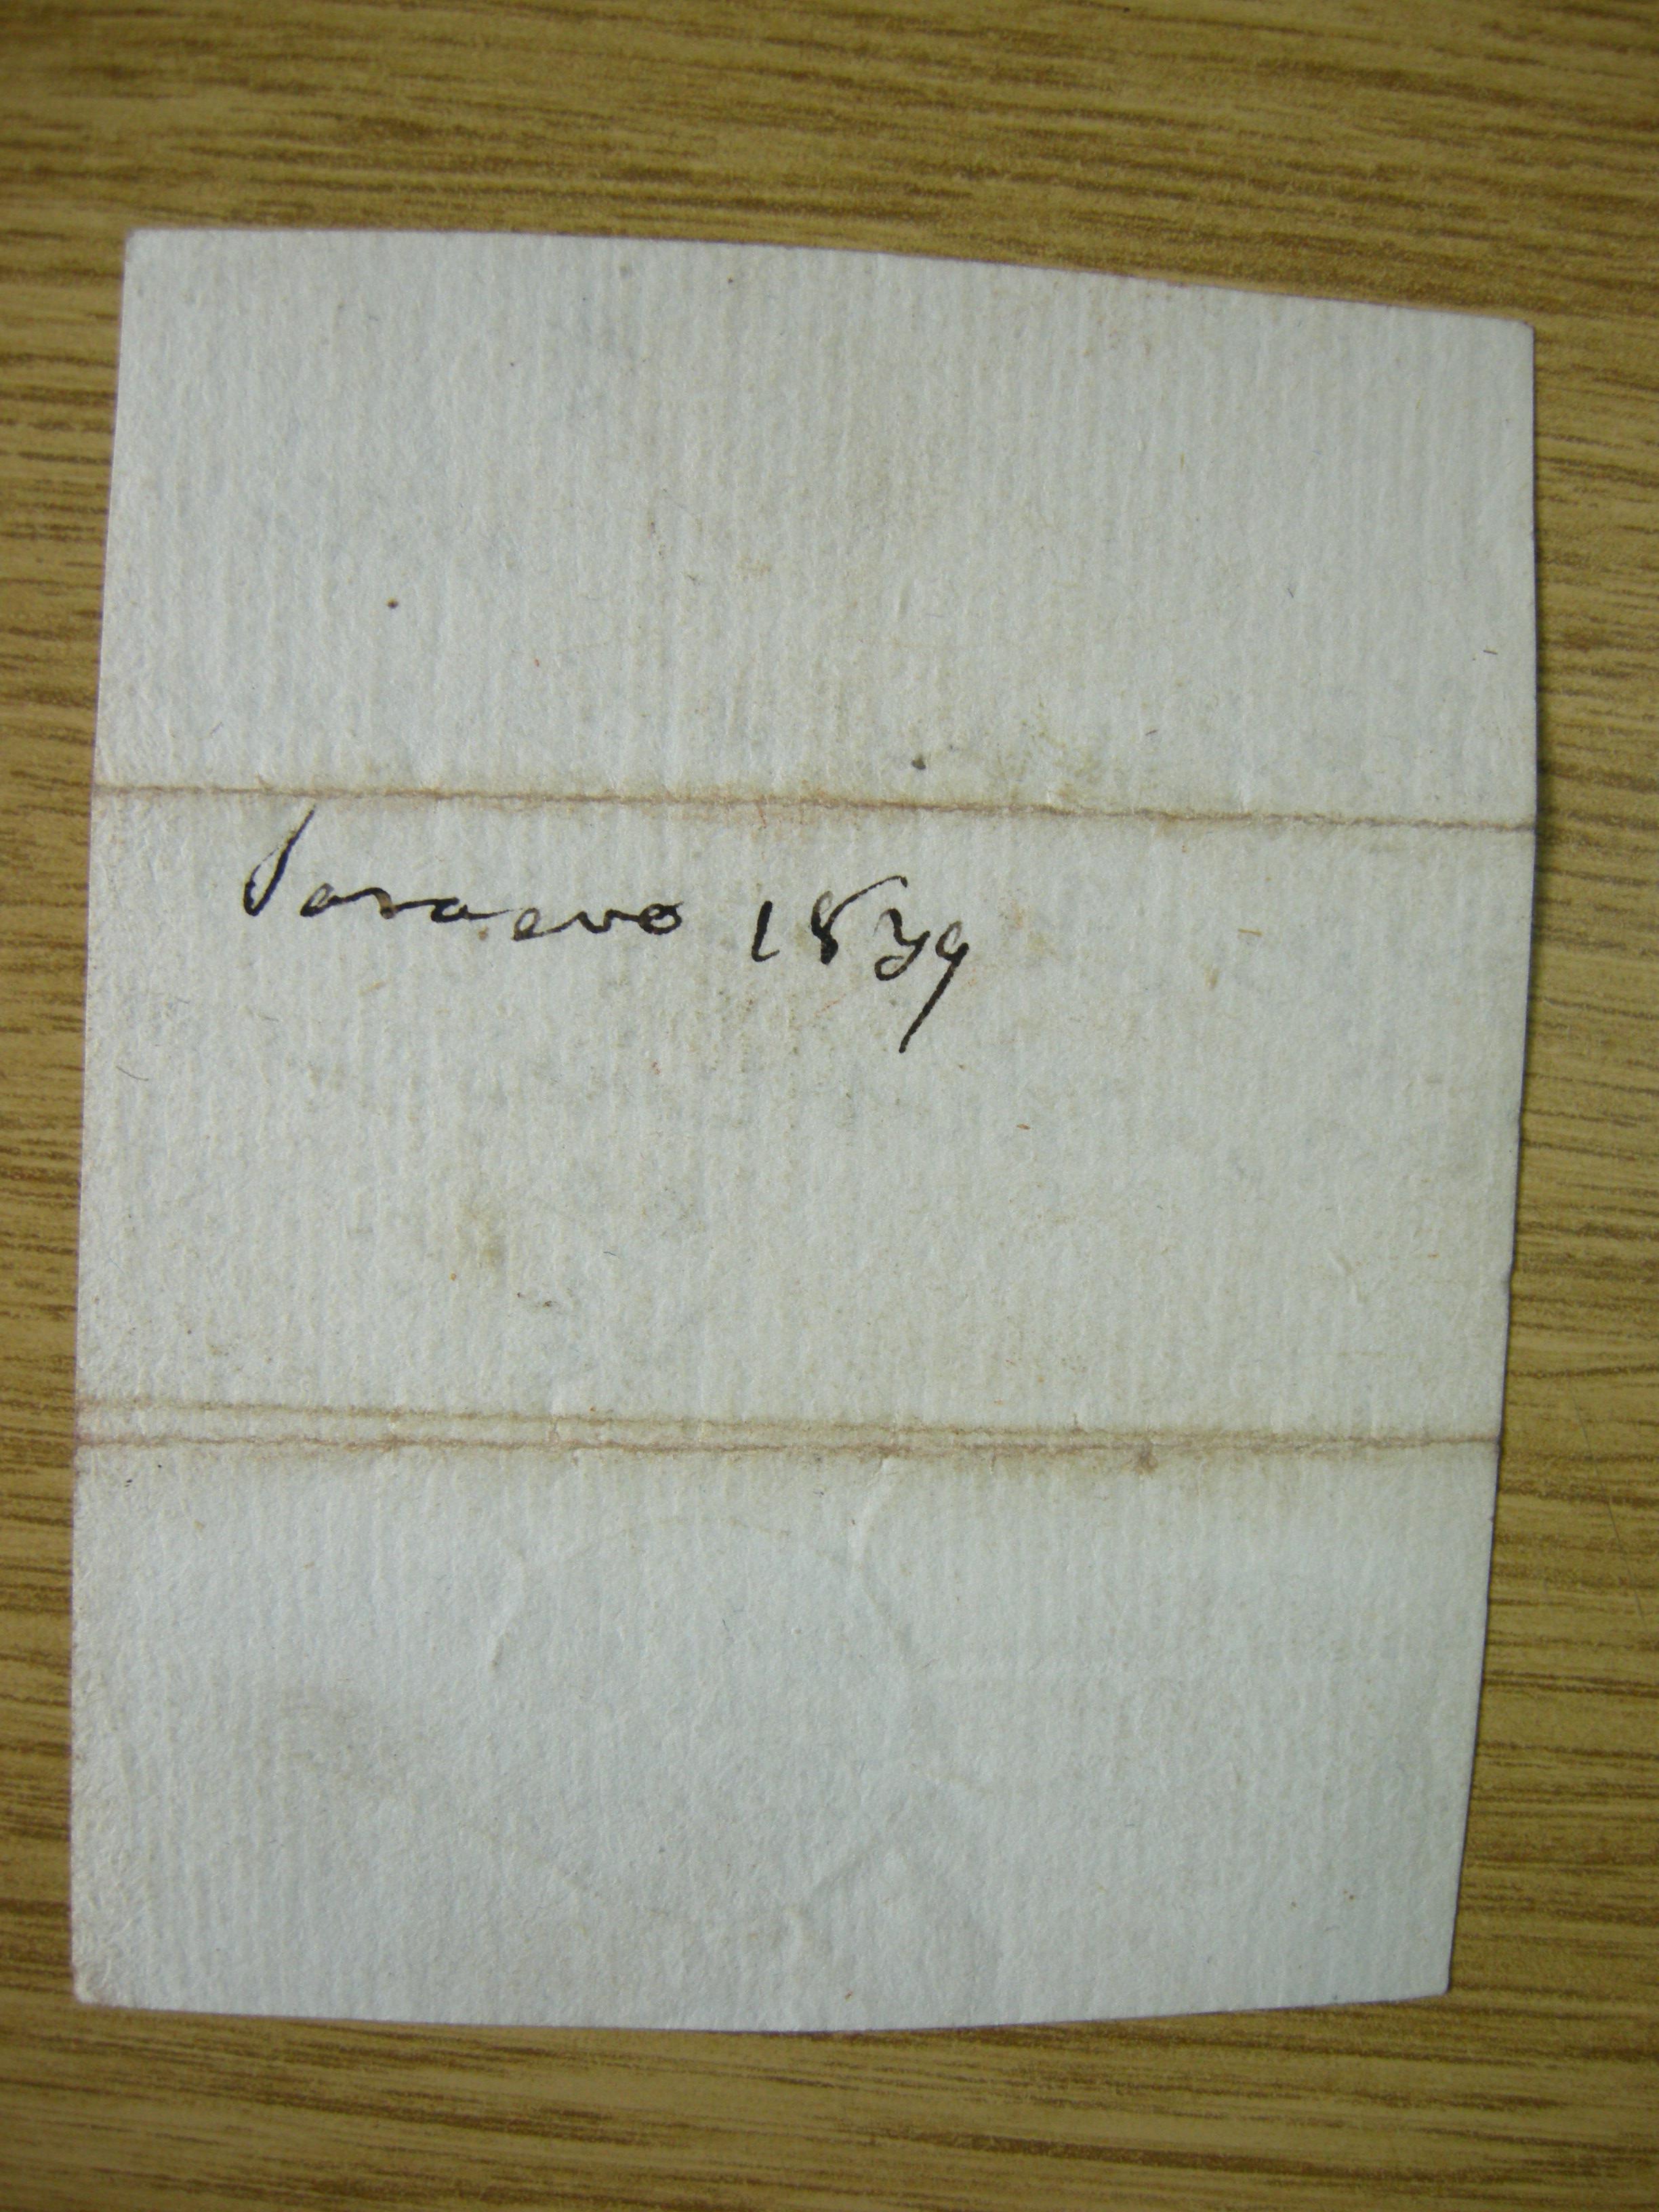 Saraevo 1879